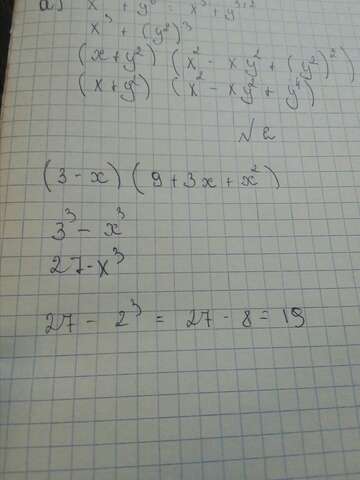 а) x³ + y⁶ = x³ + y³·²
x³ + (y²)³
(x + y²) (x² - xy² + (y²)²)
(x + y²) (x² - xy² + y⁴)
№ 2
(3 - x) (9 + 3x + x²)
3³ - x³
27 - x³
27 - 2³ = 27 - 8 = 19